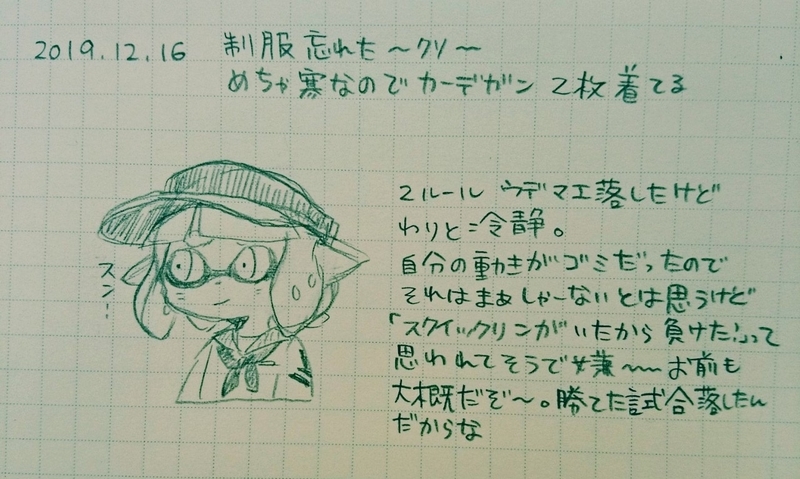 2019.12.16 制服忘れた〜クソ〜
めちゃ寒なのでカーデガン2枚着てる
2ルール ウデマエ落したけど
わりと冷静。
自分の動きがゴミだったので
それはまぁしゃーないとは思うけど
「スクイックリンがいたから負けた」って
思われてそうで嫌〜〜お前も
大概だぞ〜。勝てた試合落したん
だからな
スン…